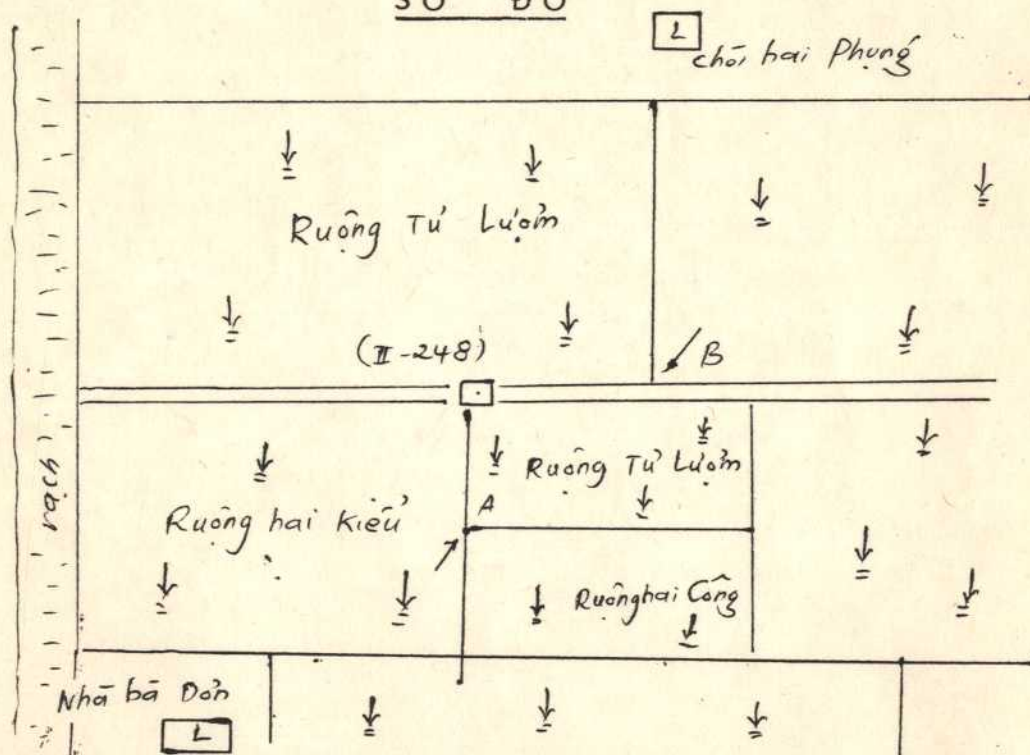 SƠ ĐỒ
L
chòi hai Phụng
Ruộng Tư Lượm
(II-248)
B
Ruộng Tư Lượm
A
Ruộng hai Kiểu
Ruộng hai Công
rạch
Nhà bà Dổn
L